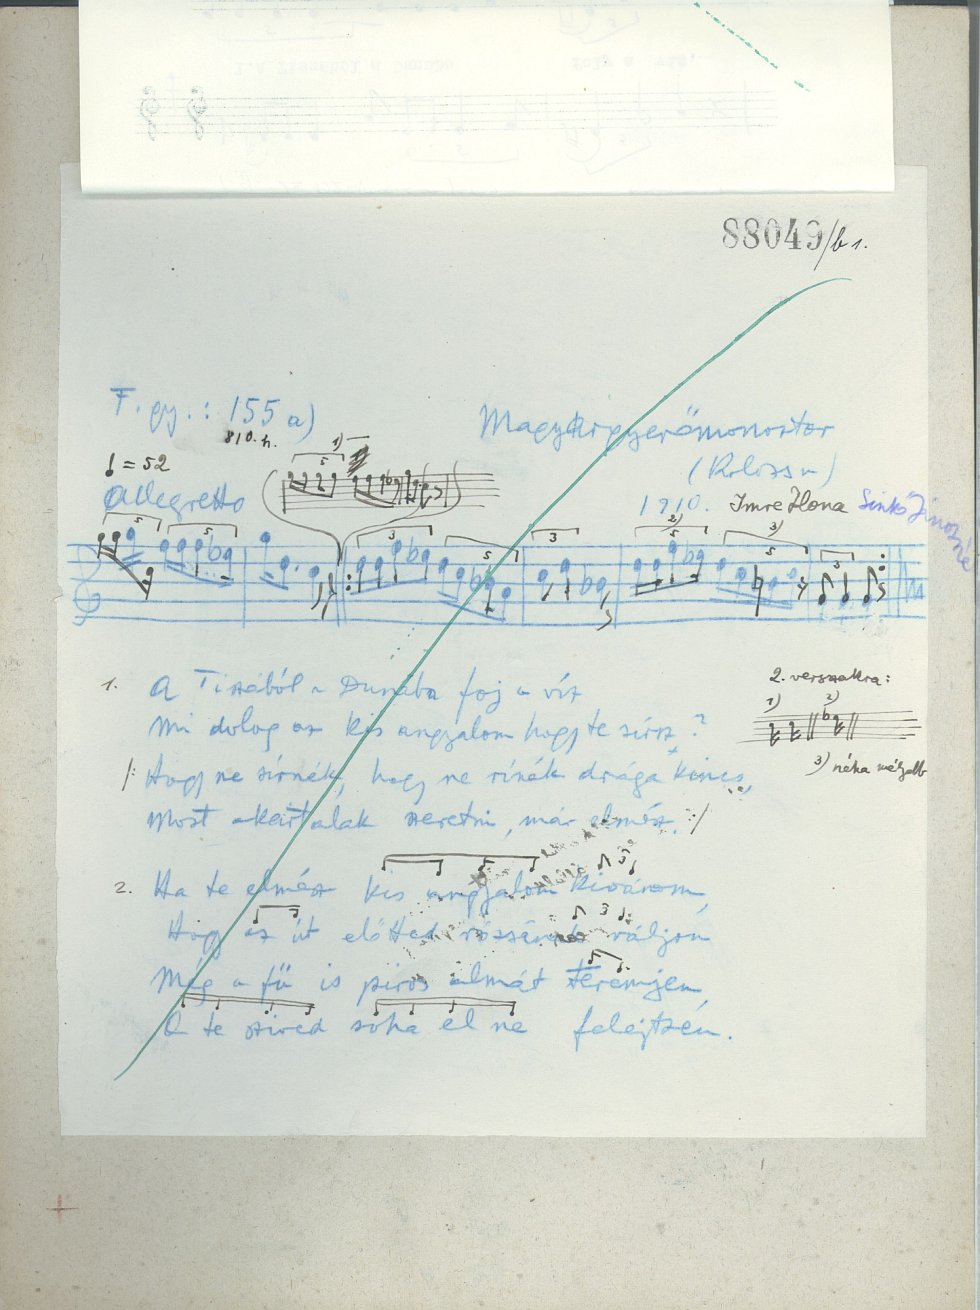 88049/b 1.
F. gy.: 155 a)
810. h.
Magyargyerőmonostor
(Kolozs m)
♩ = 52
Allegretto
1910. Imre Ilona Sinkó Jánosné
1)
5
5 5 3 5 3 2) 5 3) 5 3
1. A Tiszából a Dunába foj a víz
Mi dolog az kis angyalom hogy te sírsz?
/: Hogy ne sírnék, hogy ne rínék drága kincs,
Most akartalak szeretni, már elmész. :/
2. versszakra:
1) 2)
3) néha mélyebb
2. Ha te elmész kis angyalom kivánom,
Hogy az út előtted rózsává váljon
Még a fű is piros almát teremjen,
A te szived soha el ne felejtsen.